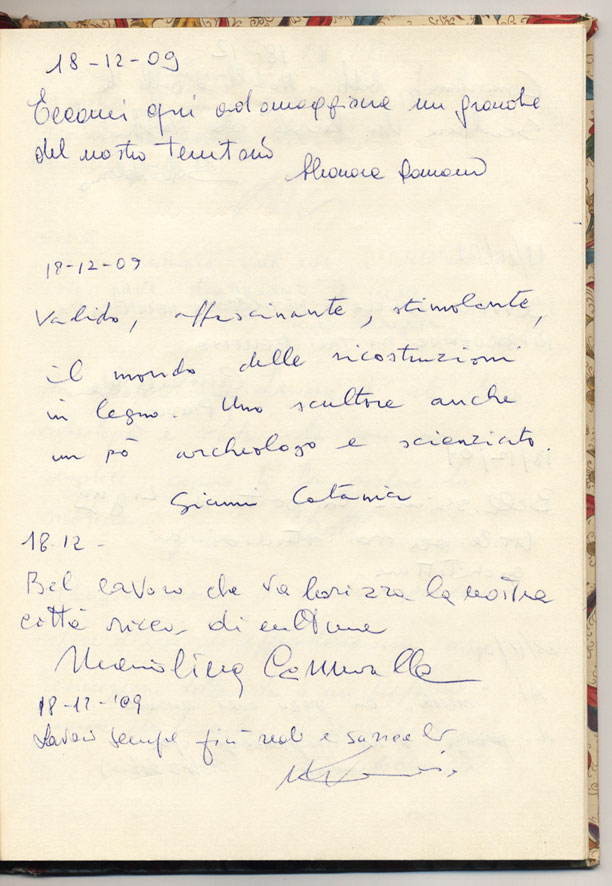 18-12-09
Eccomi qui ad omaggiare un grande
del nostro territorio
Eleonora Romano
18-12-09
Valido, affascinante, stimolante,
il mondo delle ricostruzioni
in legno. Uno scultore anche
un pò archeologo e scienziato.
Gianni Catania
18.12-
Bel lavoro che valorizza la nostra
città ricca di cultura
18-12-'09
Lavori sempre più